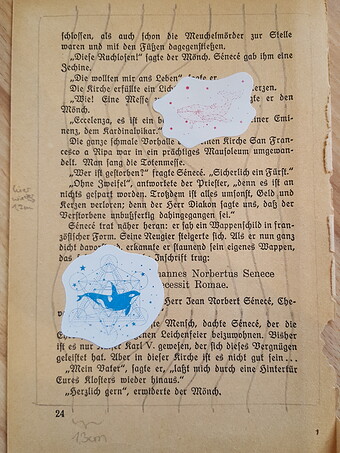 schlossen, als auch schon die Meuchelmörder zur Stelle
waren und mit den Füßen dagegenstießen.
„Diese Ruchlosen!“ sagte der Mönch. Sénecé gab ihm eine
Zechine.
„Die wollten mir ans Leben“, sagte er.
Die Kirche erfüllte ein Lich erzen.
„Wie! Eine Messe te er den
Mönch.
„Eccelenza, es ist ein be einer Emi-
nenz, dem Kardinalvikar.“
Die ganze schmale Vorhalle einen Kirche San Fran-
cesco a Ripa war in ein prächtiges Mausoleum umgewan-
delt. Man sang die Totenmesse.
„Wer ist gestorben?“ fragte Sénecé. „Sicherlich ein Fürst.“
„Ohne Zweifel“, antwortete der Priester, „denn es ist an
nichts gespart worden. Trotzdem ist alles umsonst, Geld und
Kerzen verloren; denn der Herr Diakon sagte uns, daß der
Verstorbene unbußfertig dahingegangen sei.“
Sénecé trat näher heran; er sah ein Wappenschild in fran-
zösischer Form. Seine Neugier steigerte sich. Als er nun ganz
dicht davorstand, erkannte er staunend sein eigenes Wappen,
das Inschrift trug:
hannes Norbertus Senece
ecessit Romae.
Herr Jean Norbert Sénecé, Che-
te Mensch, dachte Sénecé, der die
E eigenen Leichenfeier beizuwohnen. Bisher
ist es nur Kaiser Karl V. gewesen, der sich dieses Vergnügen
geleistet hat. Aber in dieser Kirche ist es nicht gut sein . . .
„Mein Vater“, sagte er, „laßt mich durch eine Hintertür
Eures Klosters wieder hinaus.“
„Herzlich gern“, erwiderte der Mönch.
24
13cm
1